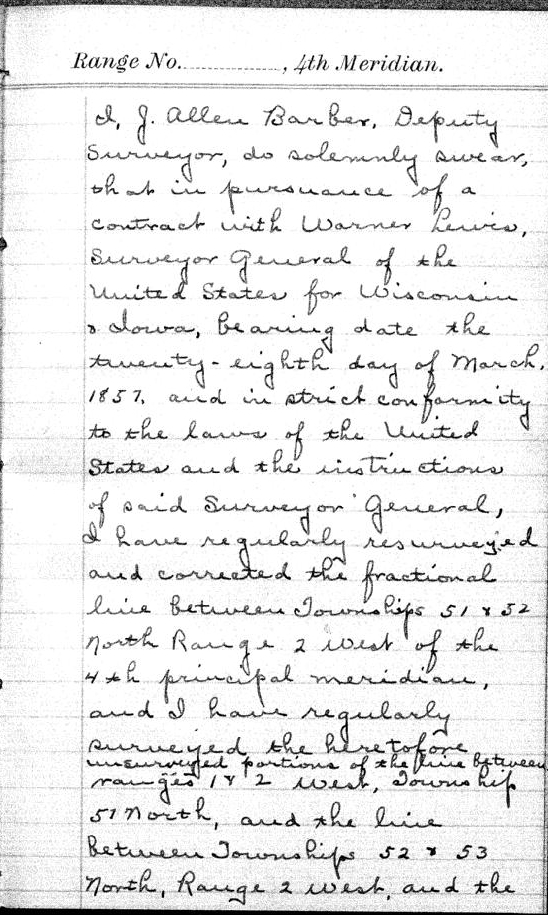 Range No. , 4th Meridian.
I, J. Allen Barber, Deputy
Surveyor, do solemnly swear,
that in pursuance of a
contract with Warner Lewis,
Surveyor General of the
United States for Wisconsin
& Iowa, bearing date the
twenty-eighth day of March,
1857, and in strict conformity
to the laws of the United
States and the instructions
of said Surveyor General,
I have regularly resurveyed
and corrected the fractional
line between Townships 51 & 52
North Range 2 West of the
4th principal meridian,
and I have regularly
surveyed the heretofore
unsurveyed portions of the line between
ranges 1 & 2 West, Township
51 North, and the line
between Townships 52 & 53
North, Range 2 West, and the